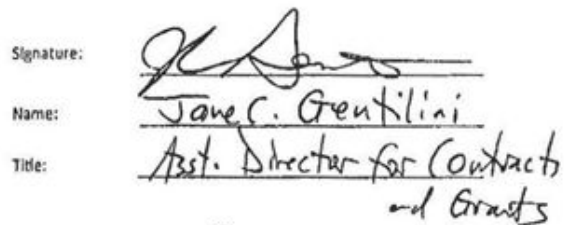 Signature:
Name: Jane C. Gentilini
Title: Asst. Director for Contracts
and Grants